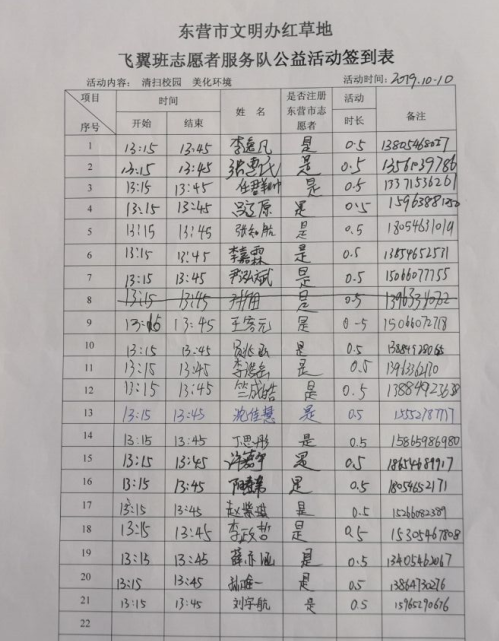 东营市文明办红草地
飞翼班志愿者服务队公益活动签到表
活动内容: 清扫校园 美化环境 活动时间: 2019.10.10
项目 时间 姓 名 是否注册东营市志愿者 活动时长 备注
序号 开始 结束
1 13:15 13:45 是 0.5 13805468027
2 13:15 13:45 是 0.5 13561039786
3 13:15 13:45 是 0.5 13371536261
4 13:15 13:45 是 0.5
5 13:15 13:45 是 0.5 18054631019
6 13:15 13:45 李嘉霖 是 0.5 13854652571
7 13:15 13:45 是 0.5 15066077155
8 13:15 13:45 是 0.5
9 13:15 13:45 王客元 是 0.5 15066072718
10 13:15 13:45 是 0.5
11 13:15 13:45 是 0.5
12 13:15 13:45 竺成皓 是 0.5 13884923638
13 13:15 13:45 沈佳慧 是 0.5
14 13:15 13:45 丁思彤 是 0.5 15865986980
15 13:15 13:45 是 0.5 18654689917
16 13:15 13:45 是 0.5 18054652171
17 13:15 13:45 是 0.5 15266082389
18 13:15 13:45 李政哲 是 0.5 15305467808
19 13:15 13:45 薛亦涵 是 0.5 13405462067
20 13:15 13:45 是 0.5 13864730276
21 13:15 13:45 刘宇航 是 0.5 15965290616
22